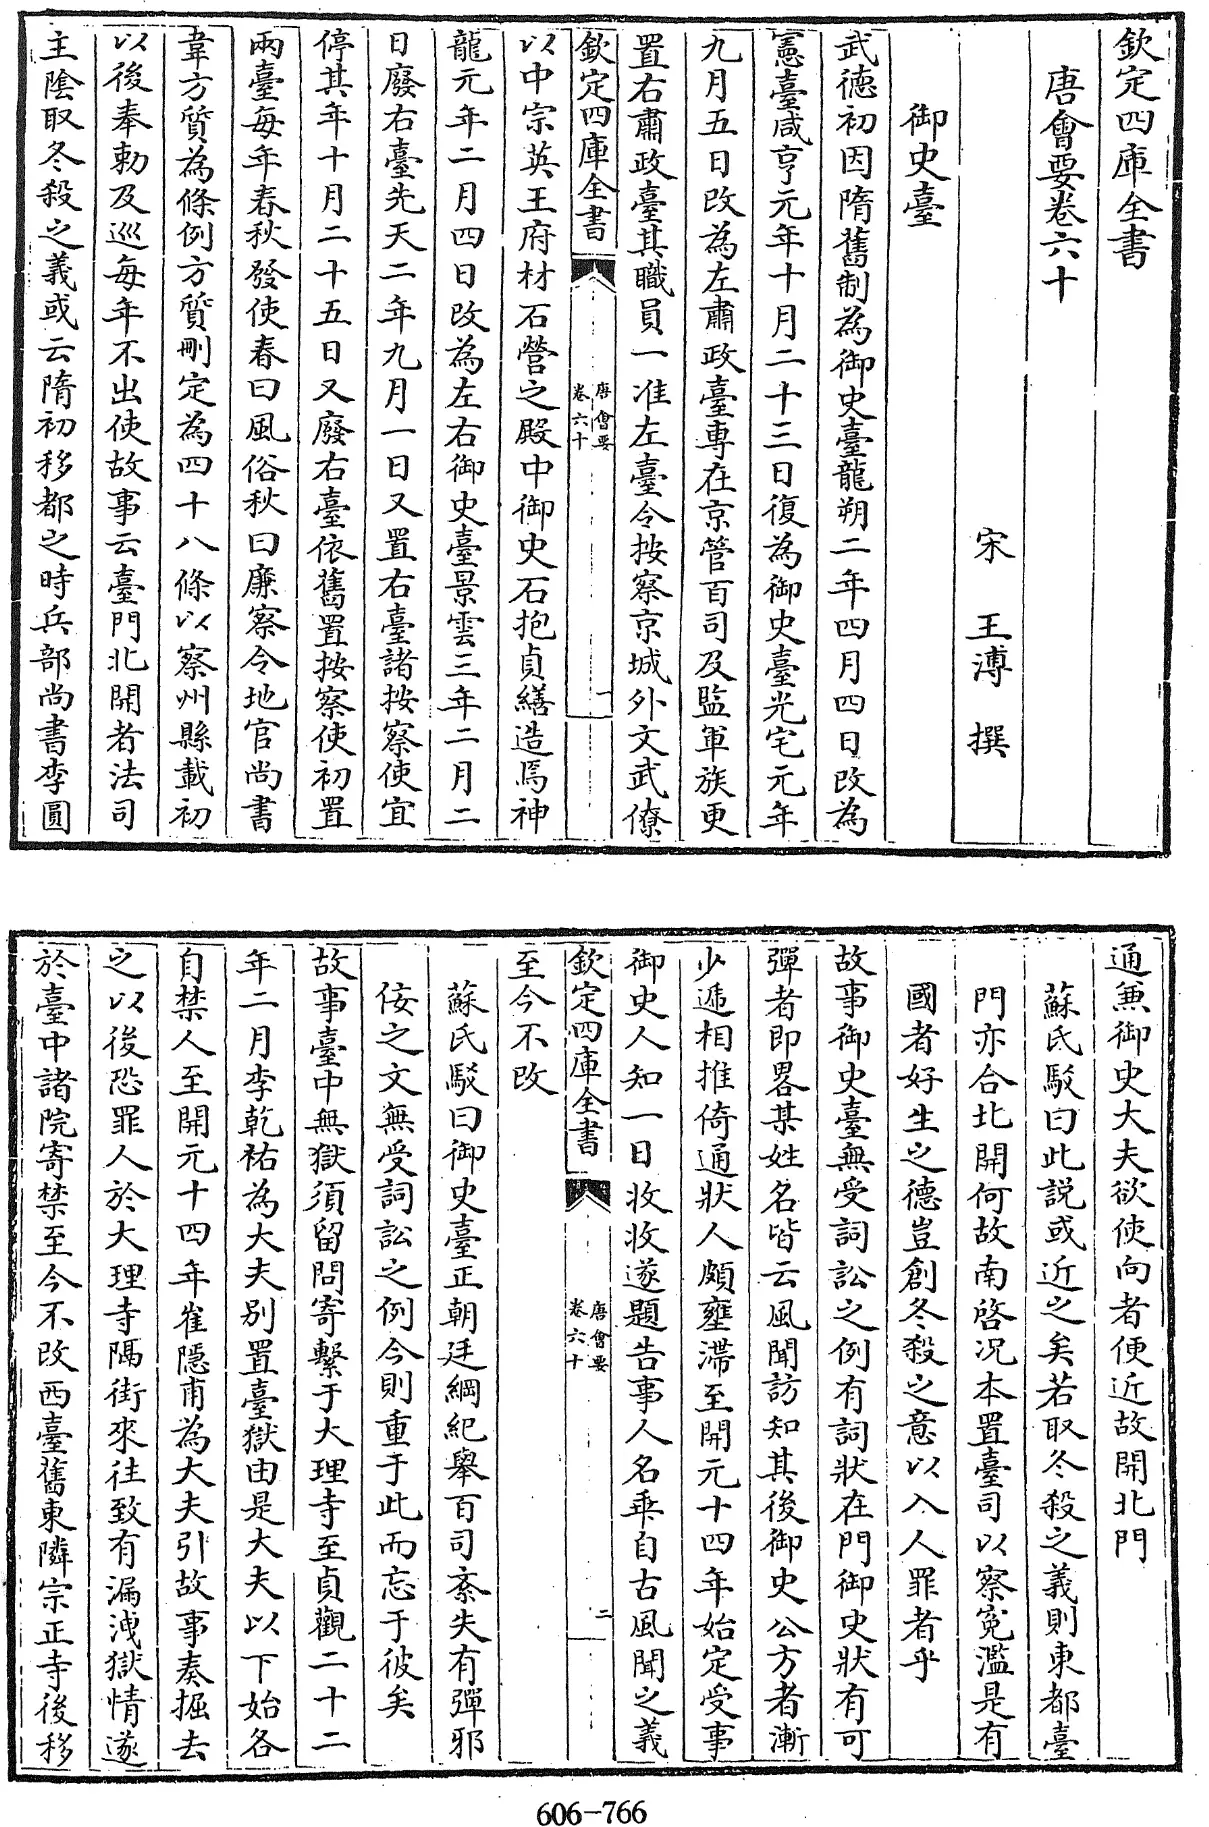 欽定四庫全書
唐會要卷六十
宋 王溥 撰
御史臺
武德初因隋舊制為御史臺龍朔二年四月四日改為
憲臺咸亨元年十月二十三日復為御史臺光宅元年
九月五日改為左肅政臺專在京管百司及監軍族更
置右肅政臺其職員一准左臺令按察京城外文武僚
欽定四庫全書
唐會要
卷六十
一
以中宗英王府材石營之殿中御史石抱貞繕造焉神
龍元年二月四日改為左右御史臺景雲三年二月二
日廢右臺先天二年九月一日又置右臺諸按察使宜
停其年十月二十五日又廢右臺依舊置按察使初置
兩臺每年春秋發使春曰風俗秋曰廉察令地官尚書
韋方質為條例方質刪定為四十八條以察州縣載初
以後奉勅及巡每年不出使故事云臺門北開者法司
主陰取冬殺之義或云隋初移都之時兵部尚書李圓
通兼御史大夫欲使向者便近故開北門
蘇氏駁曰此説或近之矣若取冬殺之義則東都臺
門亦合北開何故南啓况本置臺司以察寃濫是有
國者好生之德豈創冬殺之意以入人罪者乎
故事御史臺無受詞訟之例有詞狀在門御史狀有可
彈者即畧某姓名皆云風聞訪知其後御史公方者漸
少遞相推倚通狀人頗壅滯至開元十四年始定受事
御史人知一日收收遂題告事人名乖自古風聞之義
欽定四庫全書
唐會要
卷六十
二
至今不改
蘇氏駁曰御史臺正朝廷綱紀舉百司紊失有彈邪
佞之文無受詞訟之例今則重于此而忘于彼矣
故事臺中無獄須留問寄繫于大理寺至貞觀二十二
年二月李乾祐為大夫別置臺獄由是大夫以下始各
自禁人至開元十四年崔隱甫為大夫引故事奏掘去
之以後恐罪人於大理寺隔街來往致有漏洩獄情遂
於臺中諸院寄禁至今不改西臺舊東隣宗正寺後移
606-766